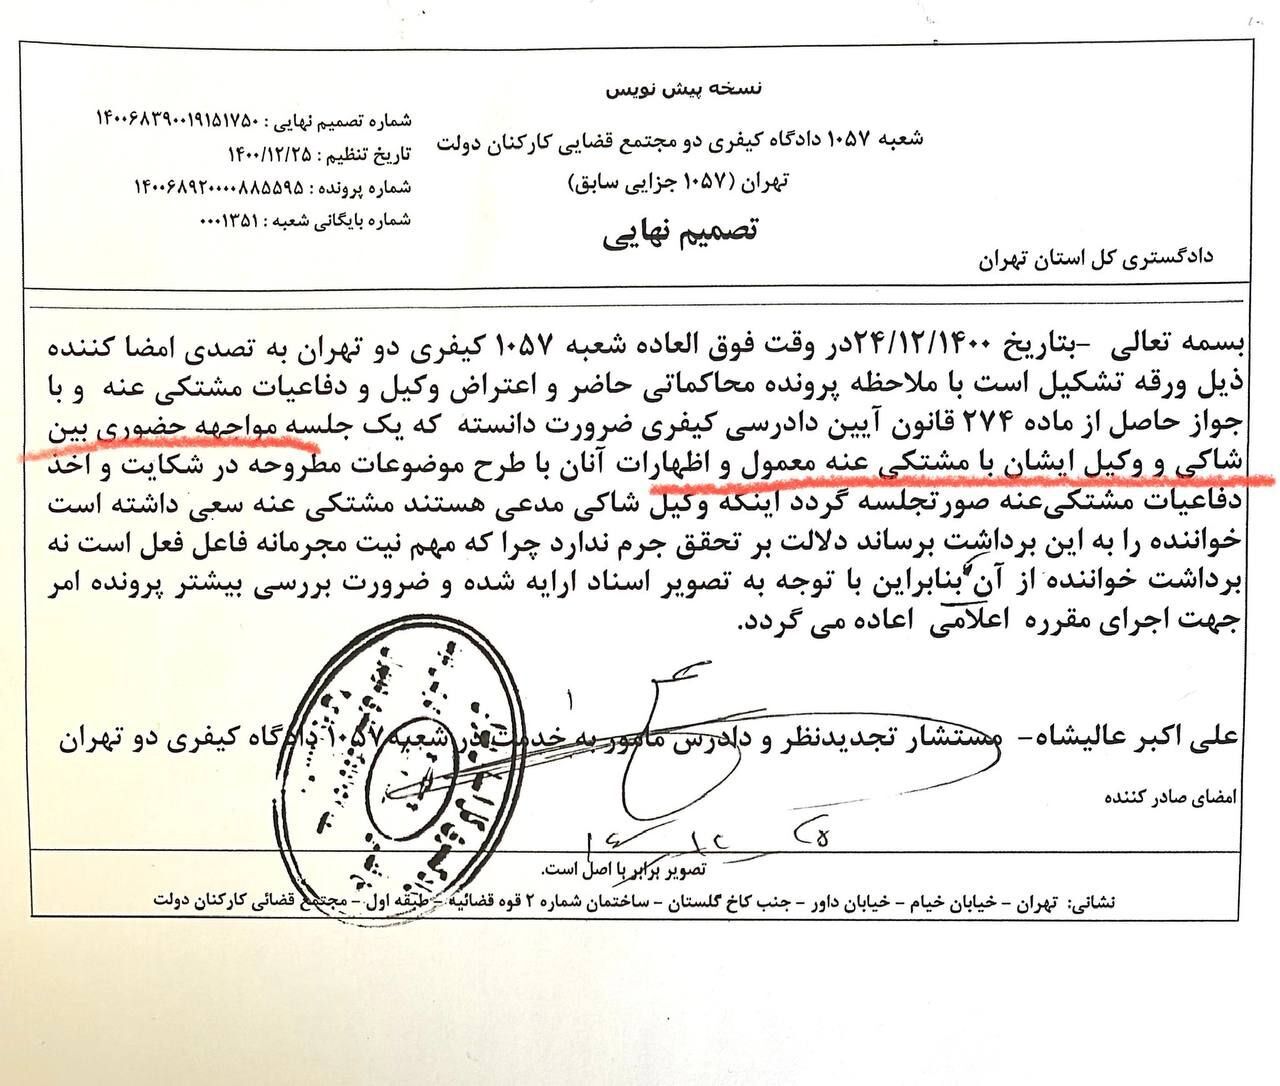 نسخه پیش نویس
شعبه ۱۰۵۷ دادگاه کیفری دو مجتمع قضایی کارکنان دولت
تهران (۱۰۵۷ جزایی سابق)
تصمیم نهایی
شماره تصمیم نهایی : ۱۴۰۰۶۸۳۹۰۰۱۹۱۵۱۷۵۰
تاریخ تنظیم : ۱۴۰۰/۱۲/۲۵
شماره پرونده : ۱۴۰۰۶۸۹۲۰۰۰۰۸۸۵۵۹۵
شماره بایگانی شعبه : ۰۰۰۱۳۵۱
دادگستری کل استان تهران
بسمه تعالی -بتاریخ ۲۴/۱۲/۱۴۰۰در وقت فوق العاده شعبه ۱۰۵۷ کیفری دو تهران به تصدی امضا کننده
ذیل ورقه تشکیل است با ملاحظه پرونده محاکماتی حاضر و اعتراض وکیل و دفاعیات مشتکی عنه و با
جواز حاصل از ماده ۲۷۴ قانون آیین دادرسی کیفری ضرورت دانسته که یک جلسه مواجهه حضوری بین
شاکی و وکیل ایشان با مشتکی عنه معمول و اظهارات آنان با طرح موضوعات مطروحه در شکایت و اخذ
دفاعیات مشتکی‌عنه صورتجلسه گردد اینکه وکیل شاکی مدعی هستند مشتکی عنه سعی داشته است
خواننده را به این برداشت برساند دلالت بر تحقق جرم ندارد چرا که مهم نیت مجرمانه فاعل فعل است نه
برداشت خواننده از آن بنابراین با توجه به تصویر اسناد ارایه شده و ضرورت بررسی بیشتر پرونده امر
جهت اجرای مقرره اعلامی اعاده می گردد.
علی اکبر عالیشاه- مستشار تجدیدنظر و دادرس مامور به خدمت در شعبه ۱۰۵۷ دادگاه کیفری دو تهران
امضای صادر کننده
تصویر برابر با اصل است.
نشانی: تهران - خیابان خیام - خیابان داور - جنب کاخ گلستان - ساختمان شماره ۲ قوه قضائیه - طبقه اول - مجتمع قضائی کارکنان دولت